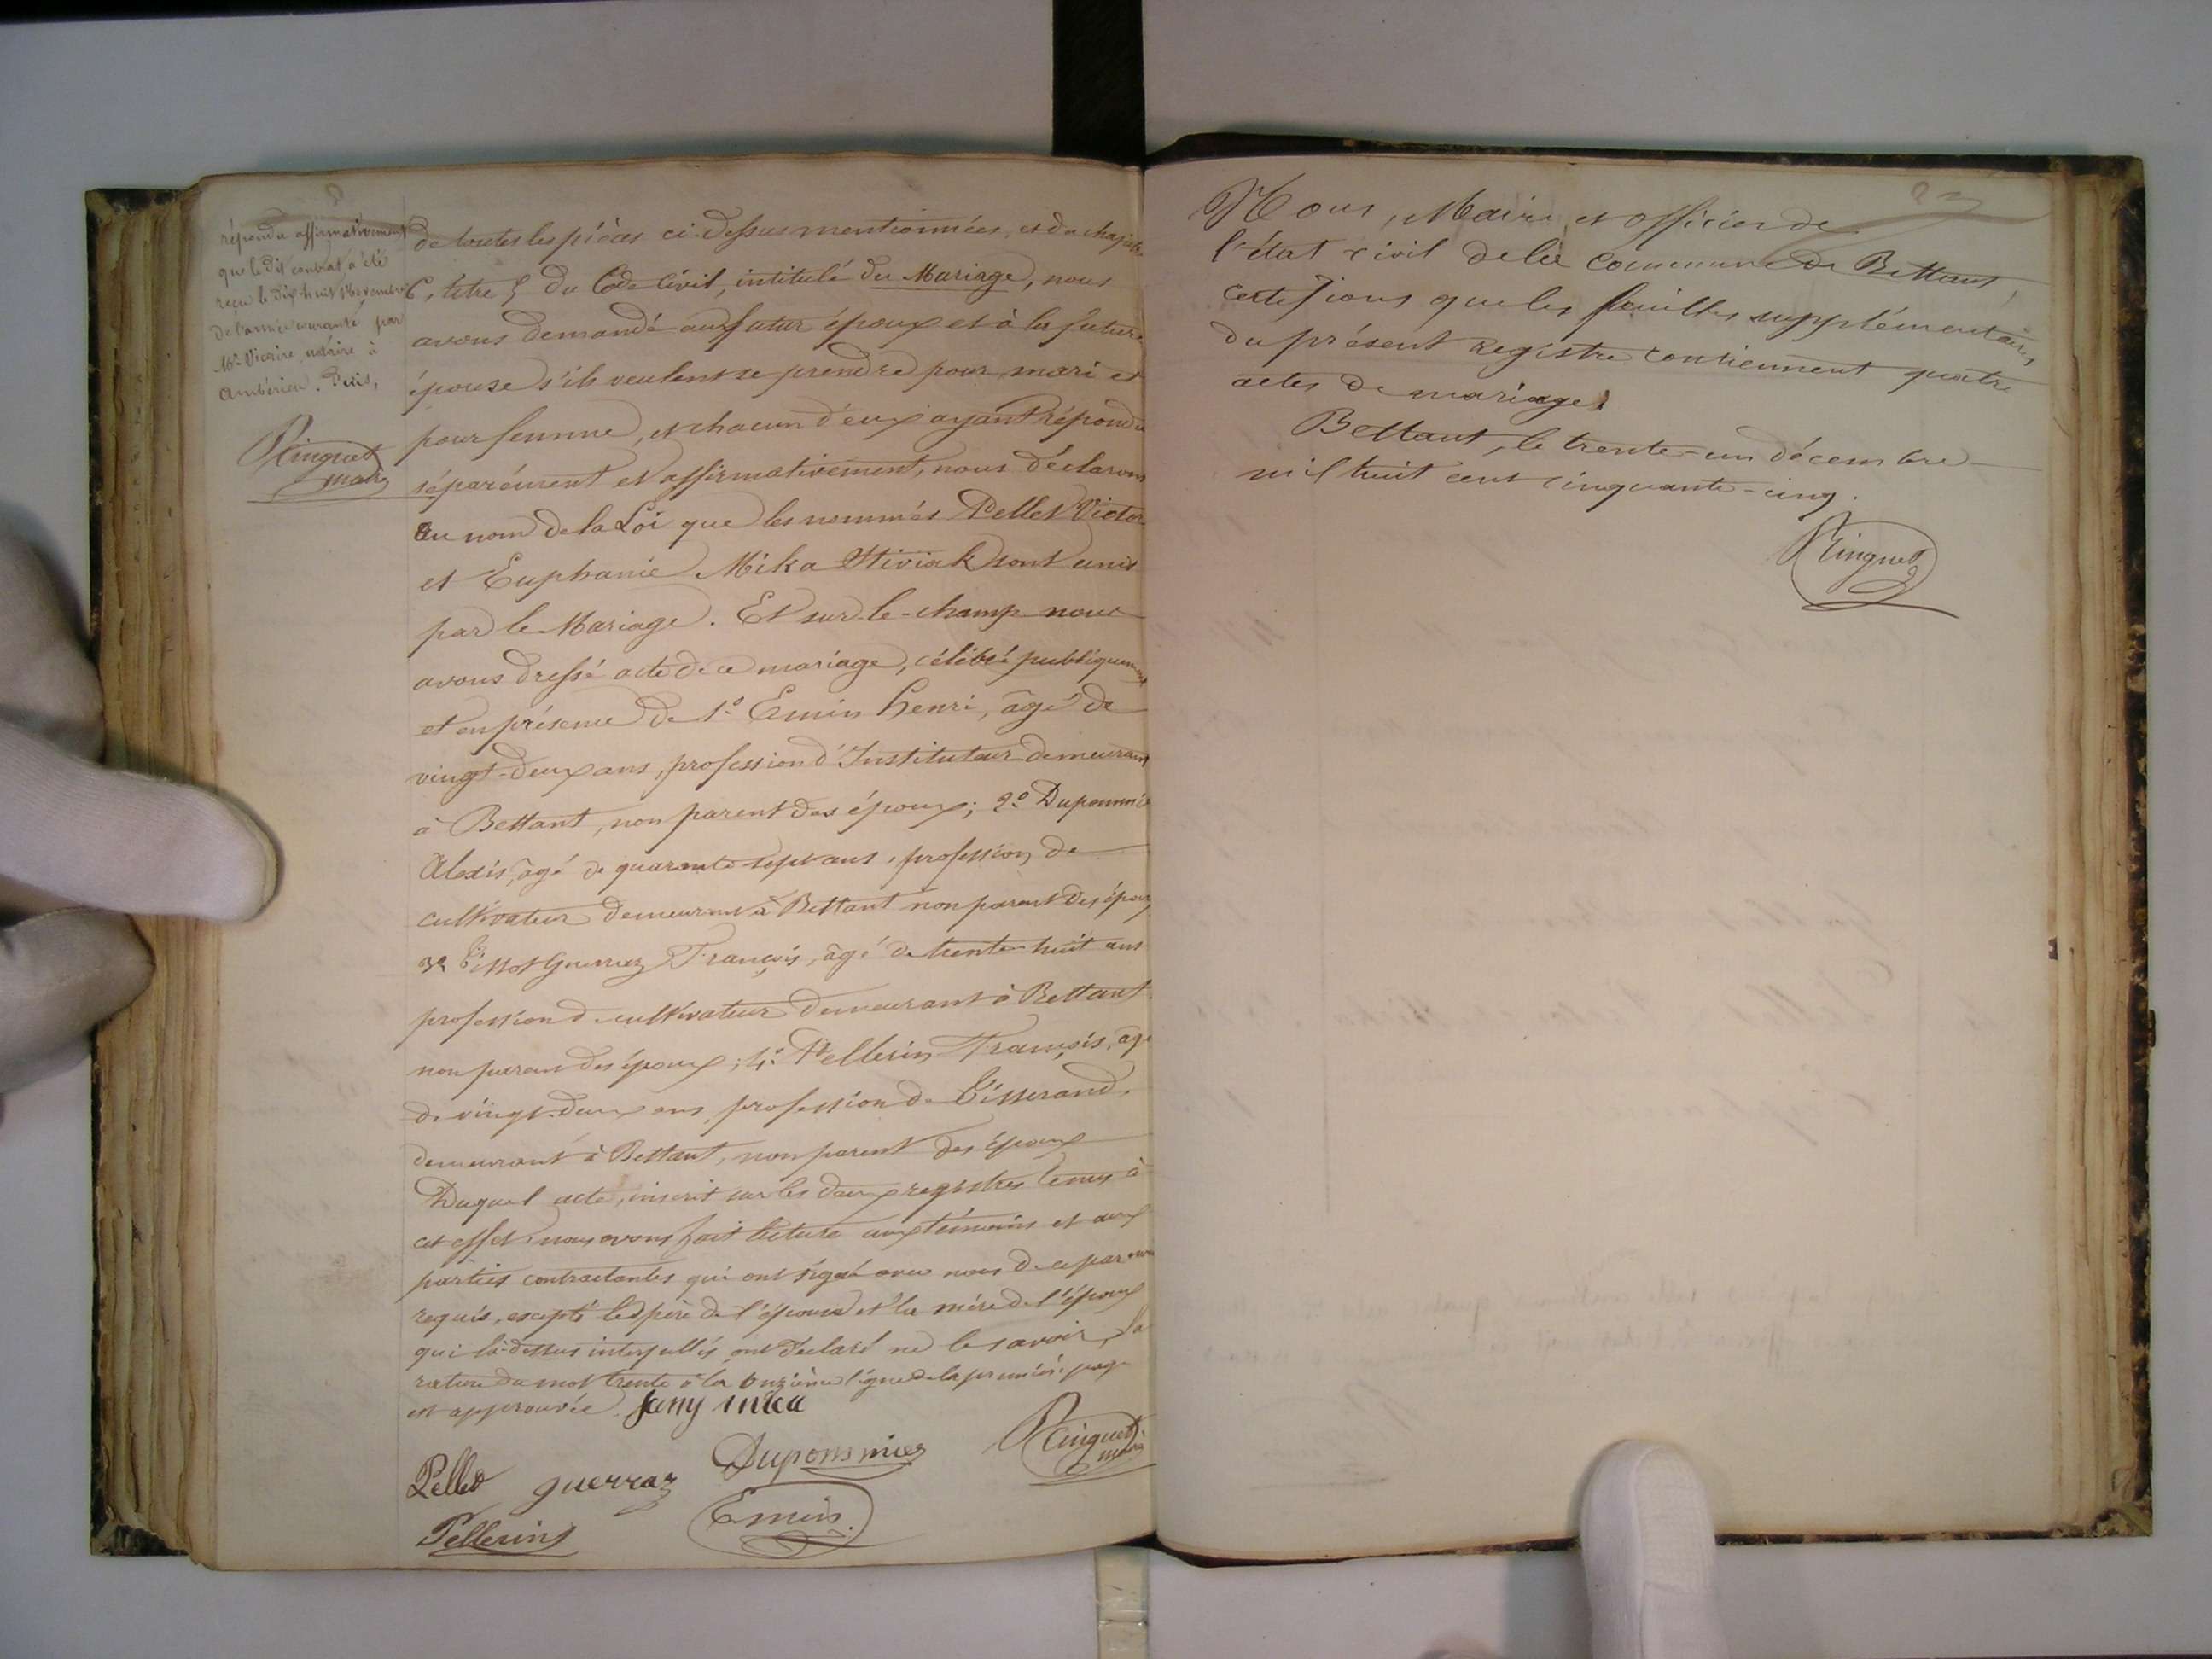 répondu affirmativement
que le dit contrat a été
reçu le dix-huit Novembre
de l'année courante par
Mᵉ Vicaire notaire à
Ambérieu.
Ringuet
maire
de toutes les pièces ci-dessus mentionnées, et du chapitre
6, titre 5 du Code Civil, intitulé du Mariage, nous
avons demandé au futur époux et à la future
épouse s'ils veulent se prendre pour mari et
pour femme, et chacun d'eux ayant répondu
séparément et affirmativement, nous déclarons
au nom de la Loi que les nommés Pellet Victor
et Euphanie Mika Stiviak sont unis
par le Mariage. Et sur-le-champ nous
avons dressé acte de ce mariage, célébré publiquement
et en présence de 1º Emin henri, âgé de
vingt-deux ans, profession d'Instituteur demeurant
à Bettant, non parent des époux; 2º Duponnié
Alexis, âgé de quarante-sept ans, profession de
cultivateur demeurant à Bettant non parent des époux
3º Tissot Guerraz François, âgé de trente-huit ans
profession de cultivateur demeurant à Bettant
non parent des époux; 4º Pellerin François, âgé
de vingt-deux ans, profession de Tisserand,
demeurant à Bettant, non parent des époux
Duquel acte, inscrit sur les deux registres tenus à
cet effet, nous avons fait lecture aux témoins et aux
parties contractantes qui ont signé avec nous de ce par nous
requis, excepté le père de l'épouse et la mère de l'époux
qui là-dessus interpellés ont déclaré ne le savoir, la
rature du mot trente à la onzième ligne de la première page
est approuvée. fany mica
Pellet guerraz Duponnier Ringuet
maire
Pellerin Emin
Nous, Maire et officier de
l'état civil de la Commune de Bettant,
certifions que les feuilles supplémentaires
du présent registre contiennent quatre
actes de mariage.
Bettant, le trente-un décembre
mil huit cent cinquante-cinq.
Ringuet